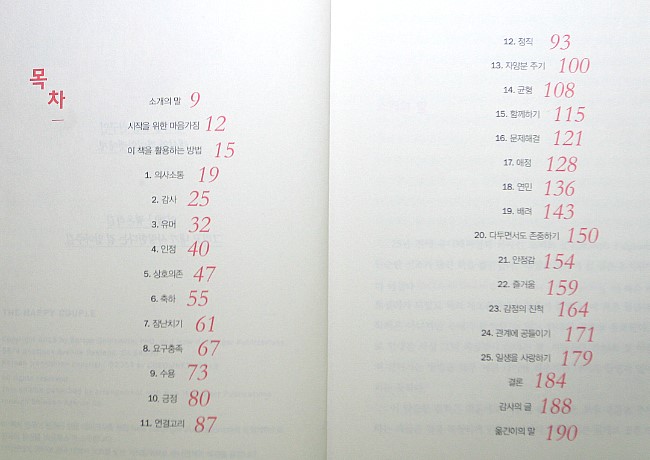 목차
소개의 말 9
시작을 위한 마음가짐 12
이 책을 활용하는 방법 15
1. 의사소통 19
2. 감사 25
3. 유머 32
4. 인정 40
5. 상호의존 47
6. 축하 55
7. 장난치기 61
8. 요구충족 67
9. 수용 73
10. 긍정 80
11. 연결고리 87
12. 정직 93
13. 자양분 주기 100
14. 균형 108
15. 함께하기 115
16. 문제해결 121
17. 애정 128
18. 연민 136
19. 배려 143
20. 다투면서도 존중하기 150
21. 안정감 154
22. 즐거움 159
23. 감정의 진척 164
24. 관계에 공들이기 171
25. 일생을 사랑하기 179
결론 184
감사의 글 188
옮긴이의 말 190